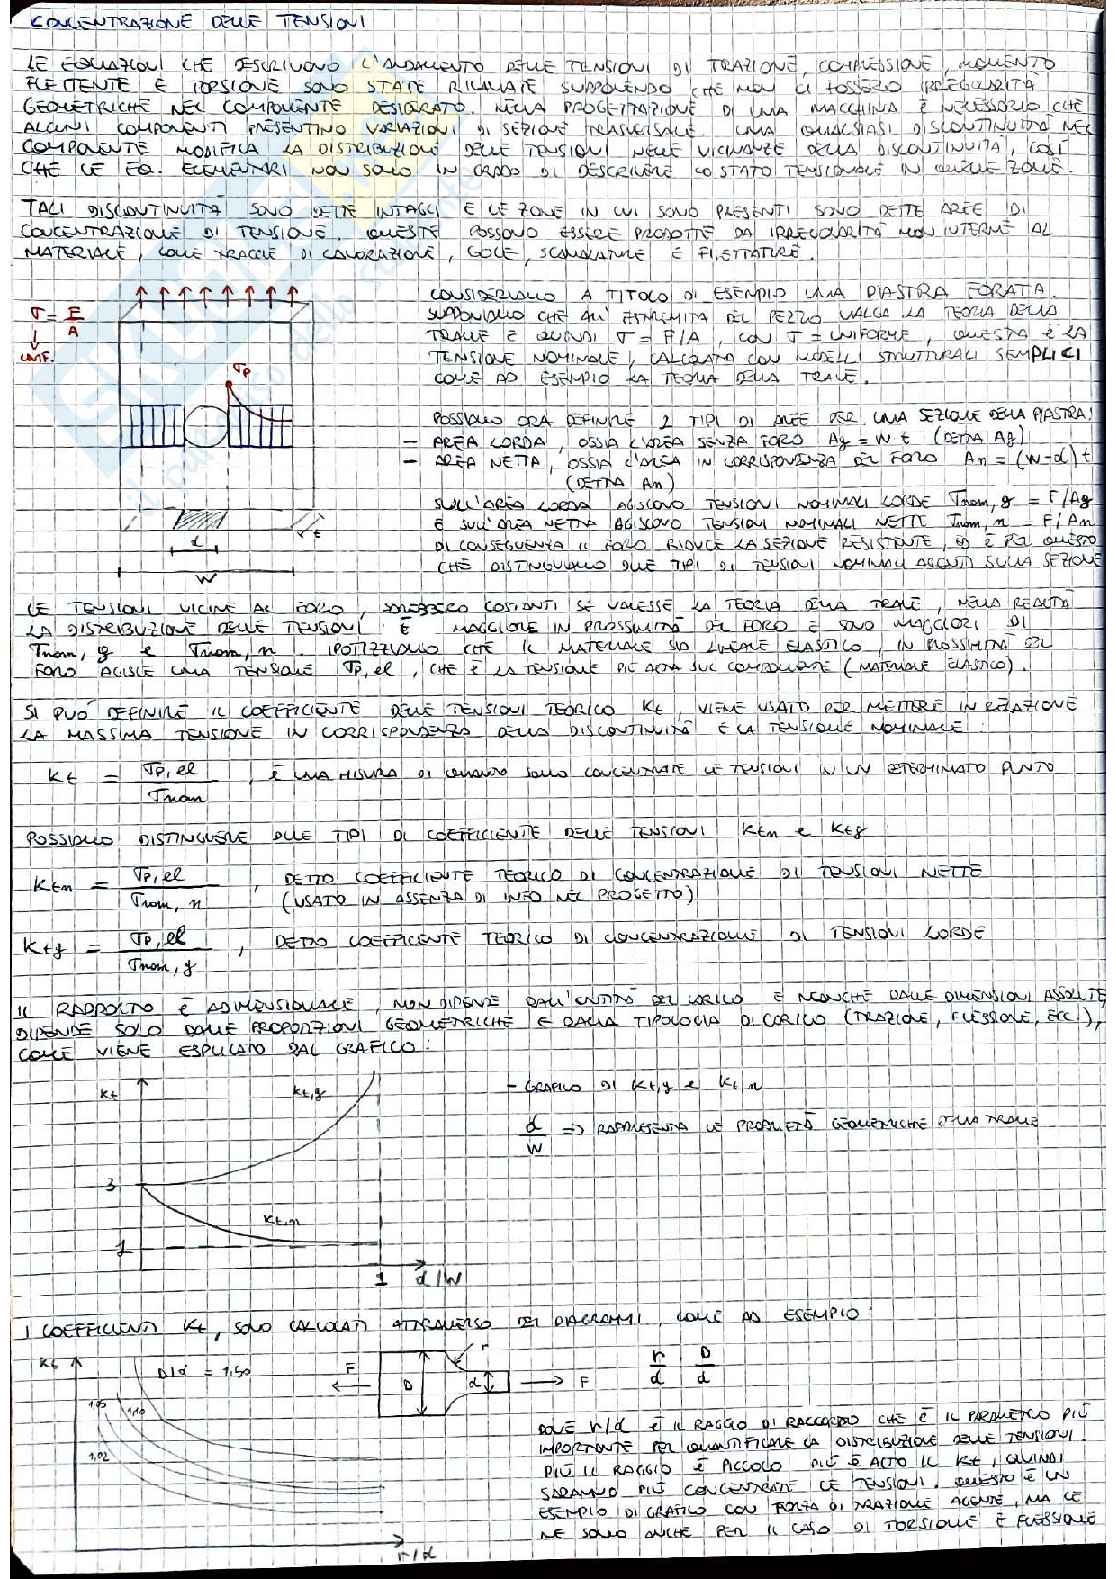 CONCENTRAZIONE DELLE TENSIONI
LE EQUAZIONI CHE DESCRIVONO L'ANDAMENTO DELLE TENSIONI DI TRAZIONE, COMPRESSIONE, MOMENTO
FLETTENTE E TORSIONE SONO STATE RICAVATE SUPPONENDO CHE NON CI FOSSERO IRREGOLARITÀ
GEOMETRICHE NEL COMPONENTE DESIDERATO. NELLA PROGETTAZIONE DI UNA MACCHINA È NECESSARIO CHE
ALCUNI COMPONENTI PRESENTINO VARIAZIONI DI SEZIONE TRASVERSALE. UNA QUALSIASI DISCONTINUITÀ NEL
COMPONENTE MODIFICA LA DISTRIBUZIONE DELLE TENSIONI NELLE VICINANZE DELLA DISCONTINUITÀ, COSÌ
CHE LE EQ. ELEMENTARI NON SONO IN GRADO DI DESCRIVERE LO STATO TENSIONALE IN QUELLE ZONE.
TALI DISCONTINUITÀ SONO DETTE INTAGLI E LE ZONE IN CUI SONO PRESENTI SONO DETTE AREE DI
CONCENTRAZIONE DI TENSIONE. QUESTE POSSONO ESSERE PRODOTTE DA IRREGOLARITÀ NON INTERNE AL
MATERIALE, COME TRACCE DI LAVORAZIONE, GOLE, SCANALATURE E FILETTATURE.
σ = F/A
UNIF.
σp
t
d
W
CONSIDERIAMO A TITOLO DI ESEMPIO UNA PIASTRA FORATA.
SUPPONIAMO CHE ALL'ESTREMITÀ DEL PEZZO VALGA LA TEORIA DELLA
TRAVE E QUINDI σ = F/A, CON σ = UNIFORME, QUESTA È LA
TENSIONE NOMINALE, CALCOLATA CON MODELLI STRUTTURALI SEMPLICI
COME AD ESEMPIO LA TEORIA DELLA TRAVE.
POSSIAMO ORA DEFINIRE 2 TIPI DI AREE PER UNA SEZIONE DELLA PIASTRA:
- AREA LORDA, OSSIA L'AREA SENZA FORO Ag = W t (DETTA Ag)
- AREA NETTA, OSSIA L'AREA IN CORRISPONDENZA DEL FORO An = (W-d) t
(DETTA An)
SULL'AREA LORDA AGISCONO TENSIONI NOMINALI LORDE σnom, g = F/Ag
E SULL'AREA NETTA AGISCONO TENSIONI NOMINALI NETTE σnom, n = F/An
DI CONSEGUENZA IL FORO RIDUCE LA SEZIONE RESISTENTE, ED È PER QUESTO
CHE DISTINGUIAMO DUE TIPI DI TENSIONI NOMINALI AGENTI SULLA SEZIONE
LE TENSIONI VICINE AL FORO, SAREBBERO COSTANTI SE VALESSE LA TEORIA DELLA TRAVE, NELLA REALTÀ
LA DISTRIBUZIONE DELLE TENSIONI È MAGGIORE IN PROSSIMITÀ DEL FORO E SONO MAGGIORI DI
σnom, g e σnom, n. IPOTIZZIAMO CHE IL MATERIALE SIA LINEARE ELASTICO, IN PROSSIMITÀ DEL
FORO AGISCE UNA TENSIONE σp, el, CHE È LA TENSIONE PIÙ ALTA SUL COMPONENTE (MATERIALE ELASTICO).
SI PUÒ DEFINIRE IL COEFFICIENTE DELLE TENSIONI TEORICO Kt, VIENE USATO PER METTERE IN RELAZIONE
LA MASSIMA TENSIONE IN CORRISPONDENZA DELLA DISCONTINUITÀ E LA TENSIONE NOMINALE:
Kt = σp, el / σnom, È UNA MISURA DI QUANTO SONO CONCENTRATE LE TENSIONI IN UN DETERMINATO PUNTO
POSSIAMO DISTINGUERE DUE TIPI DI COEFFICIENTE DELLE TENSIONI Ktn e Ktg:
Ktn = σp, el / σnom, n, DETTO COEFFICIENTE TEORICO DI CONCENTRAZIONE DI TENSIONI NETTE
(USATO IN ASSENZA DI INFO NEL PROGETTO)
Ktg = σp, el / σnom, g, DETTO COEFFICIENTE TEORICO DI CONCENTRAZIONE DI TENSIONI LORDE
IL RAPPORTO È ADIMENSIONALE, NON DIPENDE DALL'ENTITÀ DEL CARICO E NEANCHE DALLE DIMENSIONI ASSOLUTE
DIPENDE SOLO DALLE PROPORZIONI GEOMETRICHE E DALLA TIPOLOGIA DI CARICO (TRAZIONE, FLESSIONE, ETC.),
COME VIENE ESPLICATO DAL GRAFICO:
Kt
Kt,g
3
Kt,n
1
1
d/W
- GRAFICO DI Kt,g e Kt,n
d/W => RAPPRESENTA LE PROPRIETÀ GEOMETRICHE DELLA TRAVE
I COEFFICIENTI Kt, SONO CALCOLATI ATTRAVERSO DEI DIAGRAMMI, COME AD ESEMPIO:
Kt
D/d = 1,50
1,05
1,10
1,02
r/d
F
D
r
d
F
r/d D/d
DOVE r/d È IL RAGGIO DI RACCORDO CHE È IL PARAMETRO PIÙ
IMPORTANTE PER QUANTIFICARE LA DISTRIBUZIONE DELLE TENSIONI.
PIÙ IL RAGGIO È PICCOLO PIÙ È ALTO IL Kt, QUINDI
SARANNO PIÙ CONCENTRATE LE TENSIONI. QUESTO È UN
ESEMPIO DI GRAFICO CON FORZA DI TRAZIONE AGENTE, MA CE
NE SONO ANCHE PER IL CASO DI TORSIONE E FLESSIONE